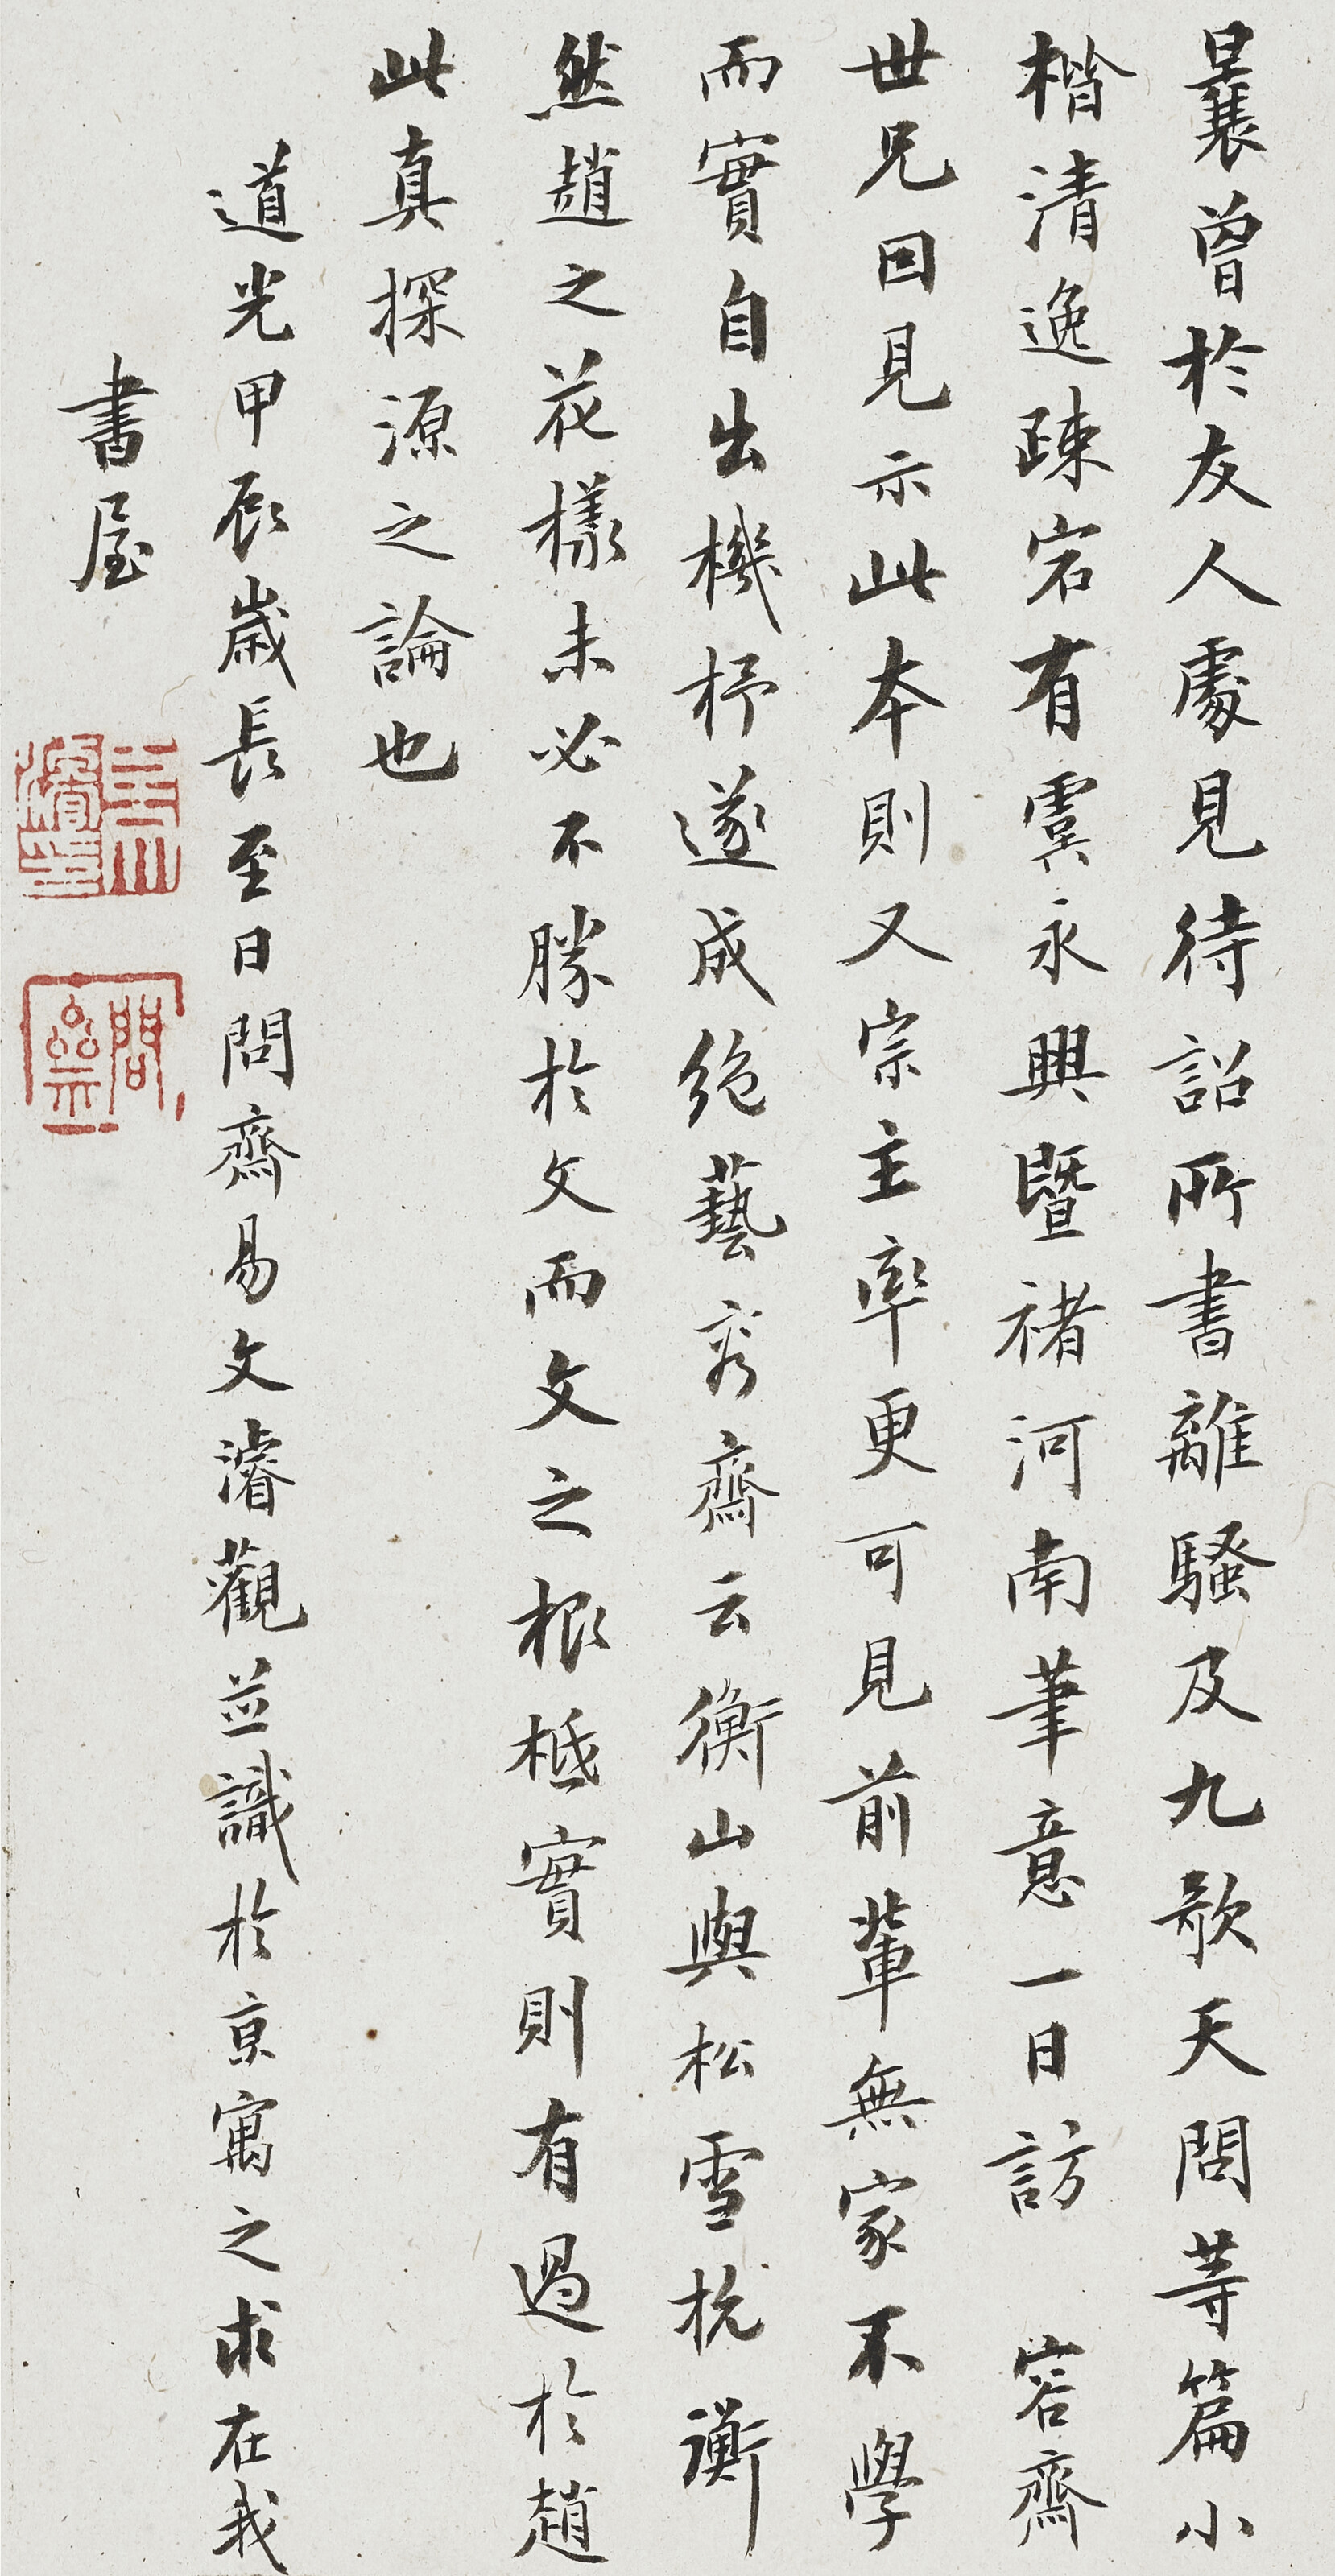 曩曾於友人處見待詔所書離騷及九歌天問等篇小
楷清逸疎宕有虞永興暨褚河南筆意一日訪 容齋
世兄回見示此本則又宗主率更可見前輩無家不學
而實自出機杼遂成絕藝容齋云衡山與松雪抗衡
然趙之花樣未必不勝於文而文之根柢實則有過於趙
此真探源之論也
道光甲辰歲長至日問齋易文濬觀並識於京寓之求在我
書屋